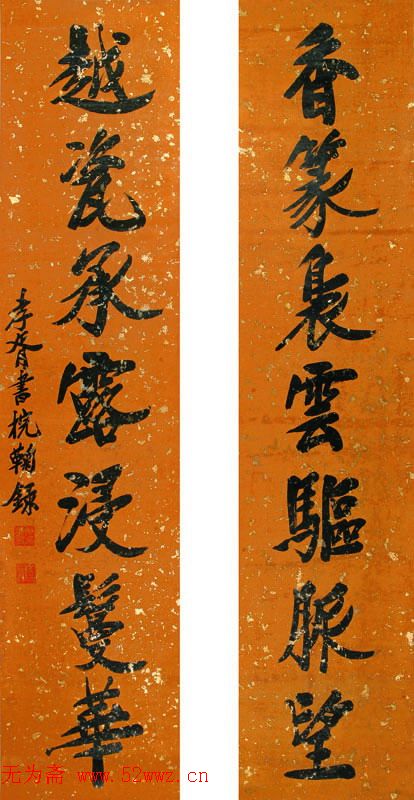 香篆裊雲驅脈望
越瓷承露浸鬘華
孝胥書梡鞠録
无为斋 www.52wwz.cn